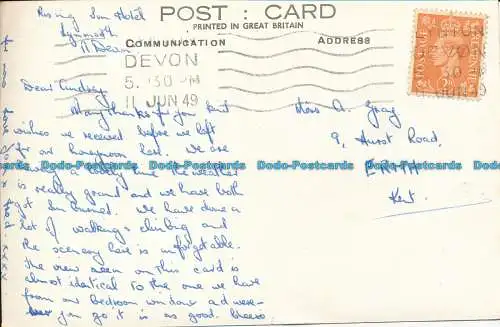 POST : CARD
PRINTED IN GREAT BRITAIN
COMMUNICATION
ADDRESS
Rising Sun Hotel
Lynmouth
N Devon
DEVON
5.30 PM
11 JUN 49
POSTAGE
Dear Audrey
Many thanks for your kind
wishes we received before we left
for our honeymoon last. We are
having a lovely time the weather
is really grand and we have both
got sun burned. We have done a
lot of walking & climbing and
the scenery here is unforgetable.
The view seen on this card is
almost identical to the one we have
from our bedroom window
you go it is as good. Cheerio
love
Fred. xxxx
Miss A. Gray
9, Hurst Road,
ERITH
Kent.
Dodo-Postcards Dodo-Postcards Dodo-Postcards Dodo-Postcards Dodo-Postcards